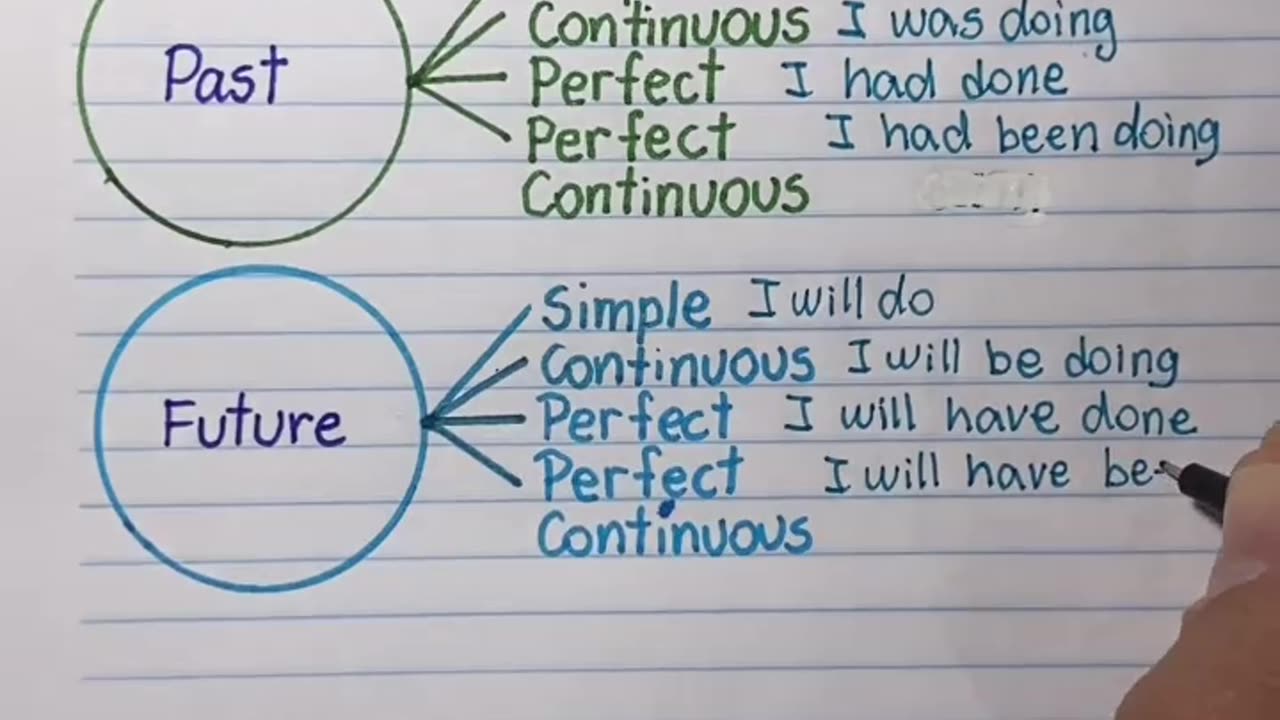 Continuous I was doing
Past
Perfect I had done
Perfect I had been doing
Continuous
Simple I will do
Continuous I will be doing
Future
Perfect I will have done
Perfect I will have be
Continuous